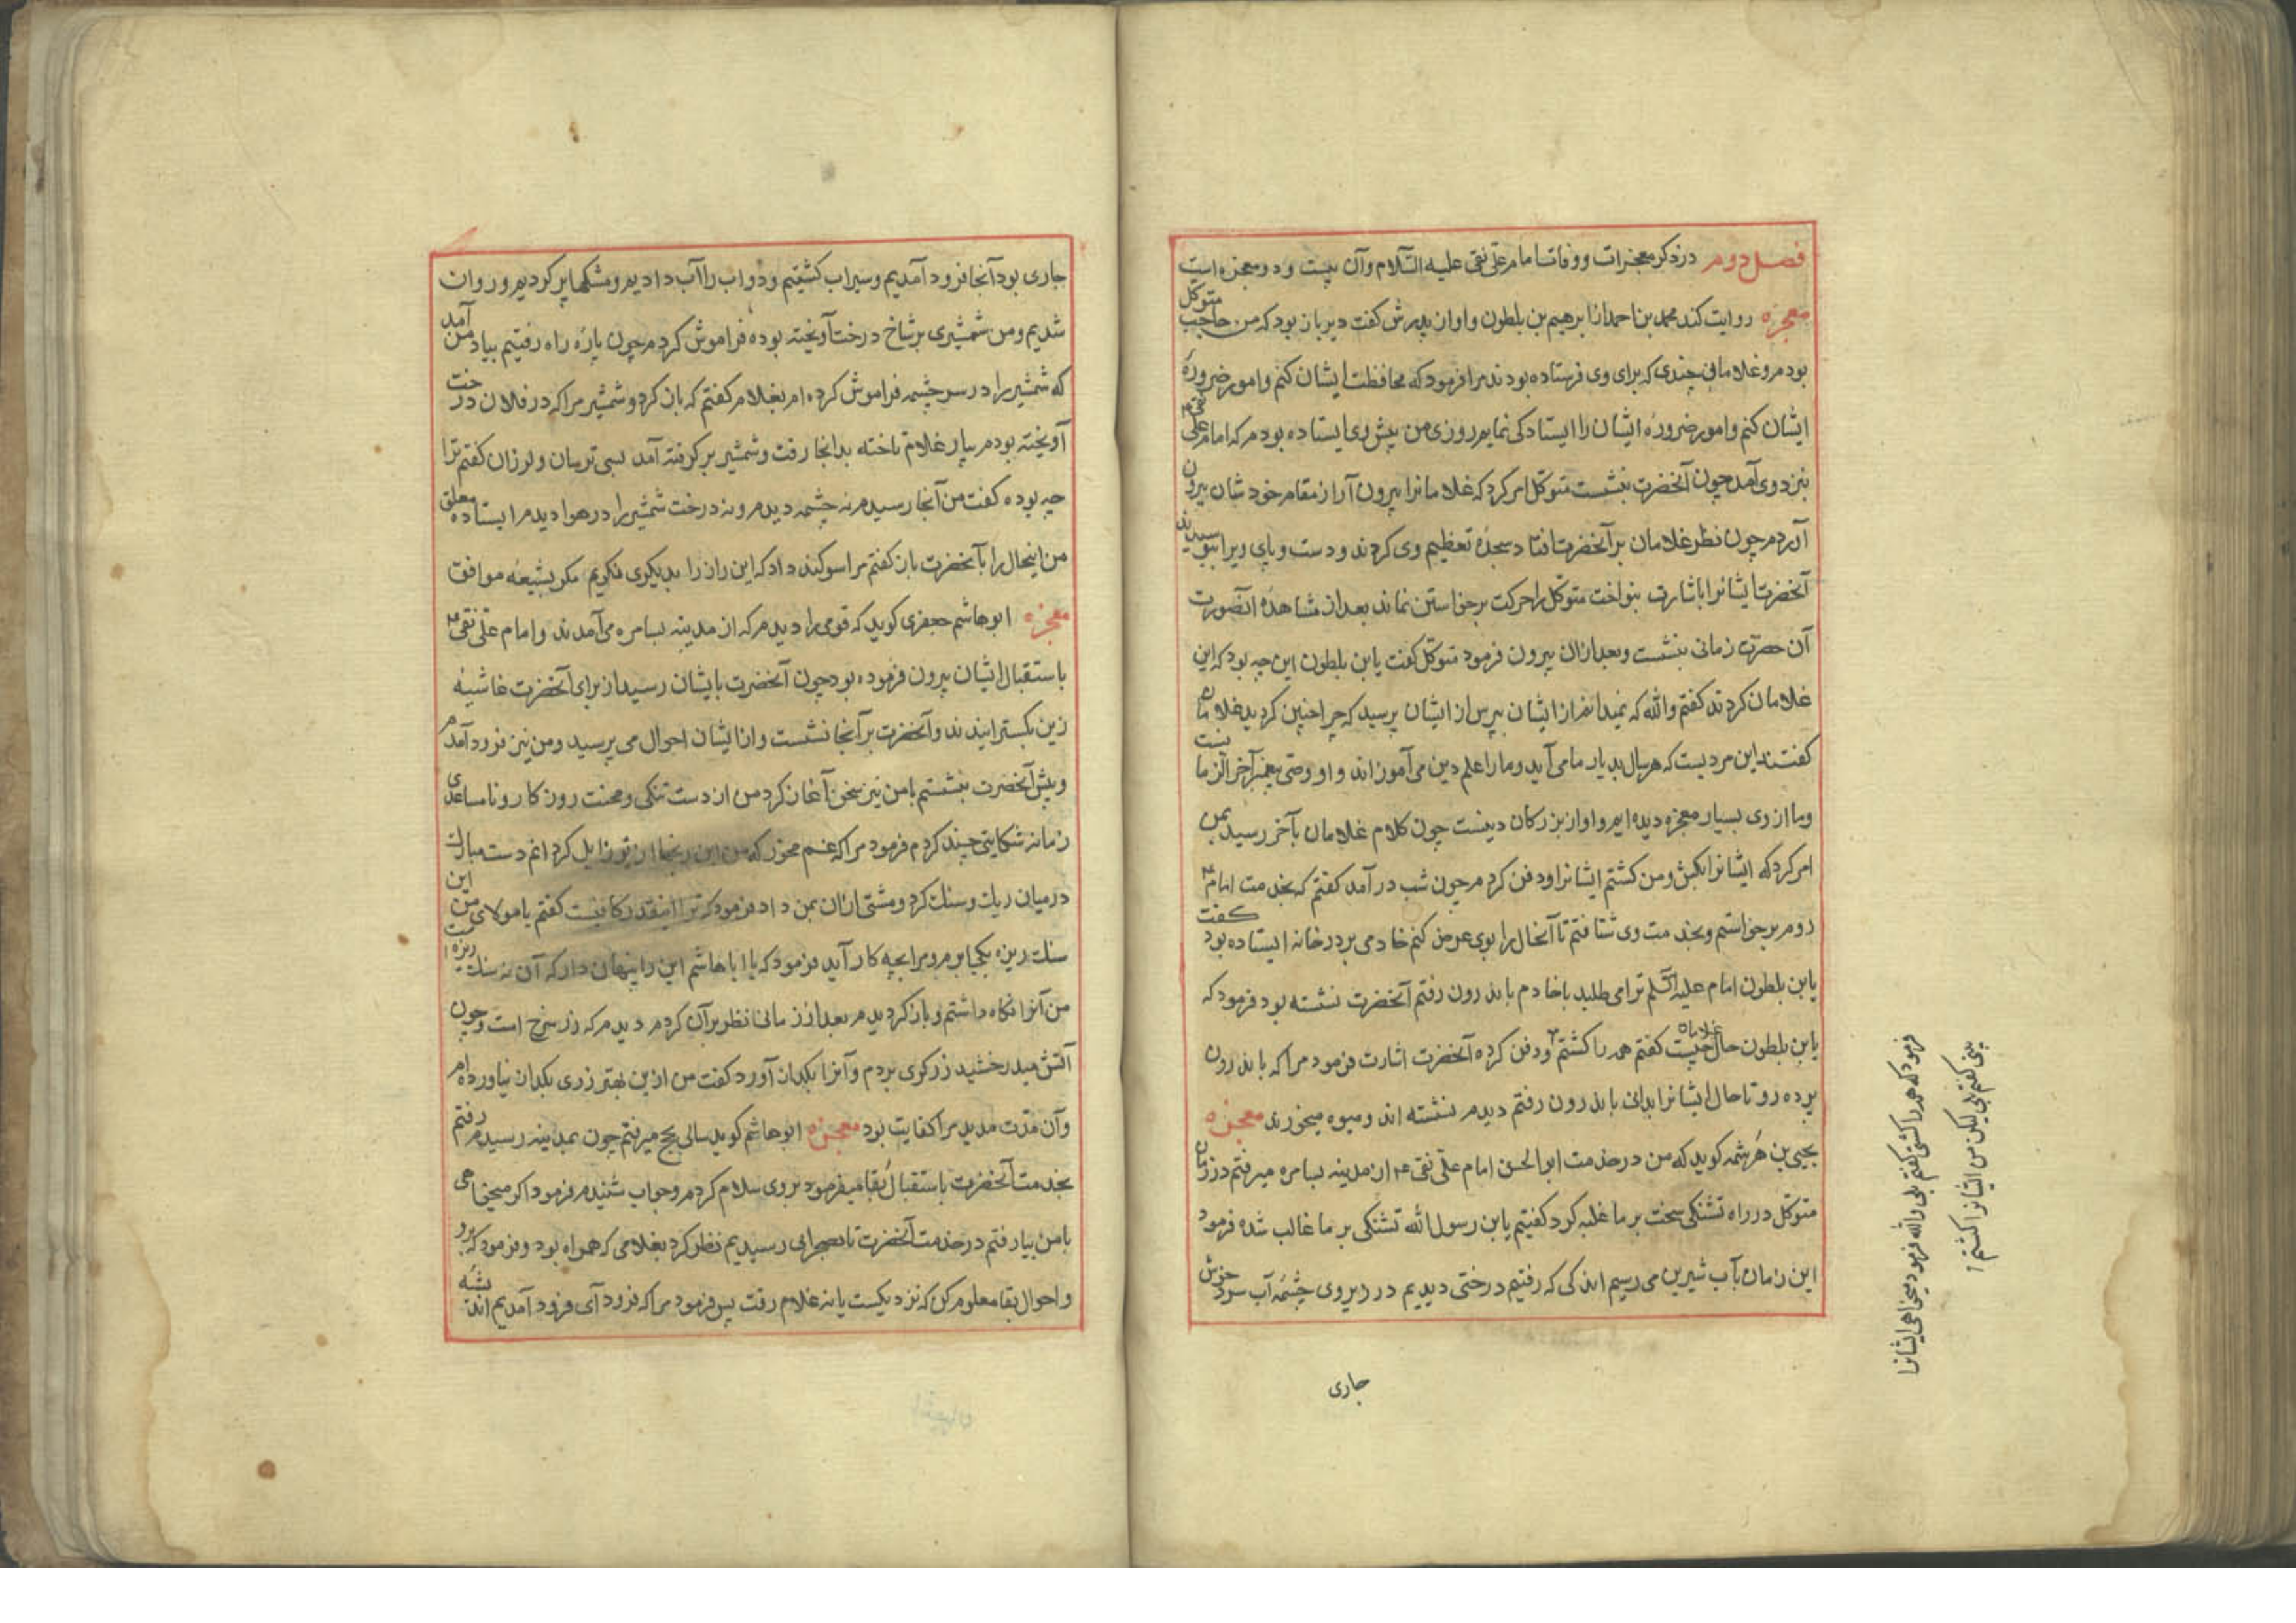 فصل دوم در ذکر معجزات و وفات امام علی نقی علیه السّلام و آن بیست و دو معجزه است
معجزه روایت کند محمد بن احمد از ابرهیم بن بلطون و او از پدرش گفت دیر باز بود که من حاجب متوکّل
بودم و غلامانی چندی که برای وی فرستاده بودند مرا فرمود که محافظت ایشان کنم و امور ضرورهٔ
ایشان کنم و امور ضرورهٔ ایشان را ایستادکی نمایم روزی من پیش وی ایستاده بودم که امام علی نقی
بنزد وی آمد چون آنحضرت بنشست متوکّل امر کرد که غلامانرا بیرون آر از مقام خودشان بیرون
آوردم چون نظر غلامان بر آنحضرت افتاد سجدهٔ تعظیم وی کردند و دست و پای ویرا ببوسیدند
آنحضرت ایشانرا باشارت بنواخت متوکّل را حرکت برخواستن نماند بعد از مشاهدهٔ انصورت
آن حضرت زمانی بنشست و بعد ازان بیرون فرمود متوکّل گفت یابن بلطون این چه بود که این
غلامان کردند گفتم والله که نمیدانم از ایشان بپرس از ایشان پرسید که چرا چنین کردید غلامان
کفتند این مردیست که هر سال بدیار ما می آید و ما را علم دین می آموزاند و او وصی پیغمبر آخر الزمانست
و ما از وی بسیار معجزه دیده ایم و او از بزرکان دینست چون کلام غلامان بآخر رسید بمن
امر کرد که ایشانرا بکش و من کشتم ایشانرا و دفن کردم چون شب در آمد کفتم که بخدمت امام ع
روم برخواستم و بخدمت وی شتافتم تا آنحال را بوی عرض کنم خادمی بر در خانه ایستاده بود کفت
یابن بلطون امام علیه السّلم ترا می طلبد با خادم باندرون رفتم آنحضرت نشسته بود فرمود که
یابن بلطون حال غلامان چیست کفتم همه را کشتم و دفن کرده آنحضرت اشارت فرمود مرا که باندرون
پرده رو تا حال ایشانرا بدانی باندرون رفتم دیدم نشسته اند و میوه میخورند معجزه
یحیی بن هرثمه کوید که من در خدمت ابو الحسن امام علی نقی ع از مدینه بسامره میرفتم در زمان
متوکّل در راه تشنکی سخت بر ما غلبه کرد کفتیم یابن رسول الله تشنکی بر ما غالب شده فرمود
این زمان بآب شیرین می رسیم اندکی که رفتیم درختی دیدیم در زیر وی چشمهٔ آب سرد خوش
جاری
فرمود که همه را کشتی کفتم بلی والله فرمود میخواهی ایشانرا
بینی کفتم بلی لیکن من ایشانرا کشتم
جاری بود آنجا فرود آمدیم و سیراب کشتیم و دواب را آب دادیم و مشکها پر کردیم و روان
شدیم و من شمشیری بر شاخ درخت آویخته بوده فراموش کردم چون پارهٔ راه رفتیم بیاد من آمد
که شمشیر را در سر چشمه فراموش کرده ام بغلام کفتم که باز کرد و شمشیر مرا که در فلان درخت
آویخته بودم بیار غلام تاخته بدانجا رفت و شمشیر بر کرفته آمد بسی ترسان و لرزان کفتم ترا
چه بوده کفت من آنجا رسیدم نه چشمه دیدم و نه درخت شمشیر را در هوا دیدم ایستاده معلق
من اینحال را بآنحضرت باز کفتم مرا سوکند داد که این راز را بدیکری نکویم مکر بشیعهٔ موافق
معجزه ابو هاشم جعفری کوید که قومی را دیدم که از مدینه بسامره می آمدند و امام علی نقی ع
باستقبال ایشان بیرون فرموده بود چون آنحضرت بایشان رسید از برای آنحضرت غاشیهٔ
زین بکسترانیدند و آنحضرت بر آنجا نشست و از ایشان احوال می پرسید و من نیز فرود آمدم
و پیش آنحضرت بنشستم با من نیز سخن آغاز کرد من از دست تنکی و محنت روزکار و نامساعدی
زمانه شکایتی چند کردم فرمود مرا که غم مخور که من این رنجها از تو زایل کردانم دست مبارک
در میان ریک و سنک کرد و مشتی ازان بمن داد فرمود که ترا اینقدر کافیست کفتم یا مولای من این
سنک ریزه بکجا برم و مرا بچه کار آید فرمود که یا ابا هاشم این را پنهان دار که آن نه سنک ریزه است
من آنرا نکاه داشتم و باز کردیدم بعد از زمانی نظر بر آن کردم دیدم که زر سرخ است و چون
آتش میدرخشید زرکری بردم و آنرا بکدازد آورد کفت من ازین بهتر زری بکدازن نیاورده ام
و آن مدّت مدید مرا کفایت بود معجزه ابو هاشم کوید سالی بحج میرفتم چون بمدینه رسیدم رفتم
بخدمت آنحضرت باستقبال بُقا میفرمود بروی سلام کردم و جواب شنیدم فرمود اکر میخواهی
با من بیا رفتم در خدمت آنحضرت تا بصحرایی رسیدیم نظر کرد بغلامی که همراه بود و فرمود که برو
و احوال بقا معلوم کن که نزدیکست یا نه غلام رفت پس فرمود مرا که فرود آی فرود آمدیم